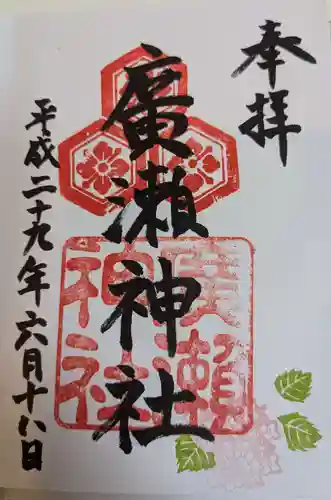 奉拝
廣瀬神社
廣瀨神社
平成二十九年六月十八日